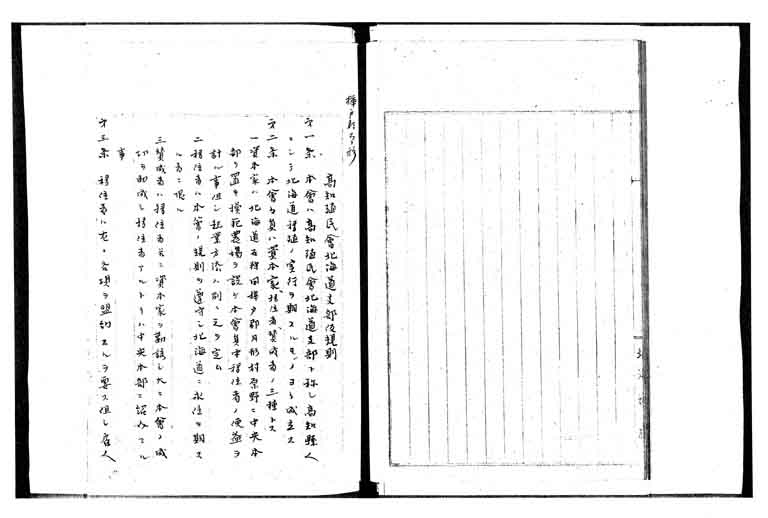 樺戸郡月形
高知殖民會北海道支部假規則
第一条 本會ハ高知殖民會北海道支部ト称シ高知縣人
ニシテ北海道移殖ノ実行ヲ期スルモノヨリ成立ス
第二条 本會員ハ資本家移住者賛成者ノ三種トス
一資本家ハ北海道石狩国樺戸郡月形村原野ニ中央本
部ヲ置キ模範農場ヲ設ケ本會員中移住者ノ便益ヲ
計ル事但シ起業方法ハ別ニ之ヲ定ム
二移住者ハ本會ノ規則ヲ遵守シ北海道ニ永住ヲ期ス
ル者ニ限ル
三賛成者ハ移住者并ニ資本家ヲ勧誘シ大ニ本會ノ成
功ヲ助成シ移住者アルトキハ中央本部ニ紹介スル
事
第三条 移住者ハ左ノ各項ヲ盟約スルヲ要ス但シ